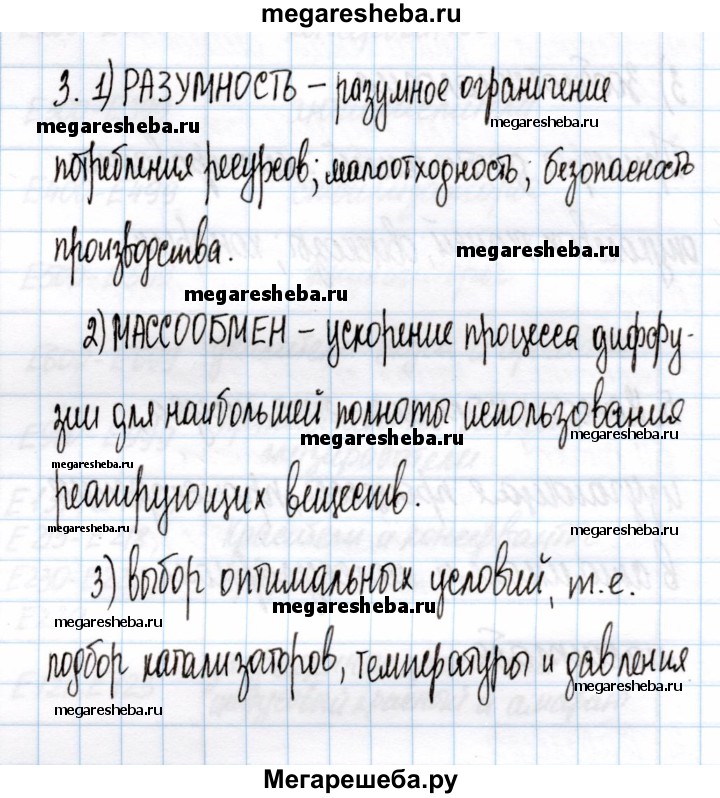 megaresheba.ru
3. 1) РАЗУМНОСТЬ – разумное ограничение
megaresheba.ru megaresheba.ru
потребления ресурсов; малоотходность; безопасность
производства.
megaresheba.ru
megaresheba.ru
2) МАССООБМЕН – ускорение процесса диффу-
зии для наибольшей полноты использования
megaresheba.ru megaresheba.ru
megaresheba.ru
реагирующих веществ.
megaresheba.ru megaresheba.ru
3) выбор оптимальных условий, т.е.
megaresheba.ru
megaresheba.ru
подбор катализаторов, температуры и давления
megaresheba.ru megaresheba.ru
Мегарешеба.ру